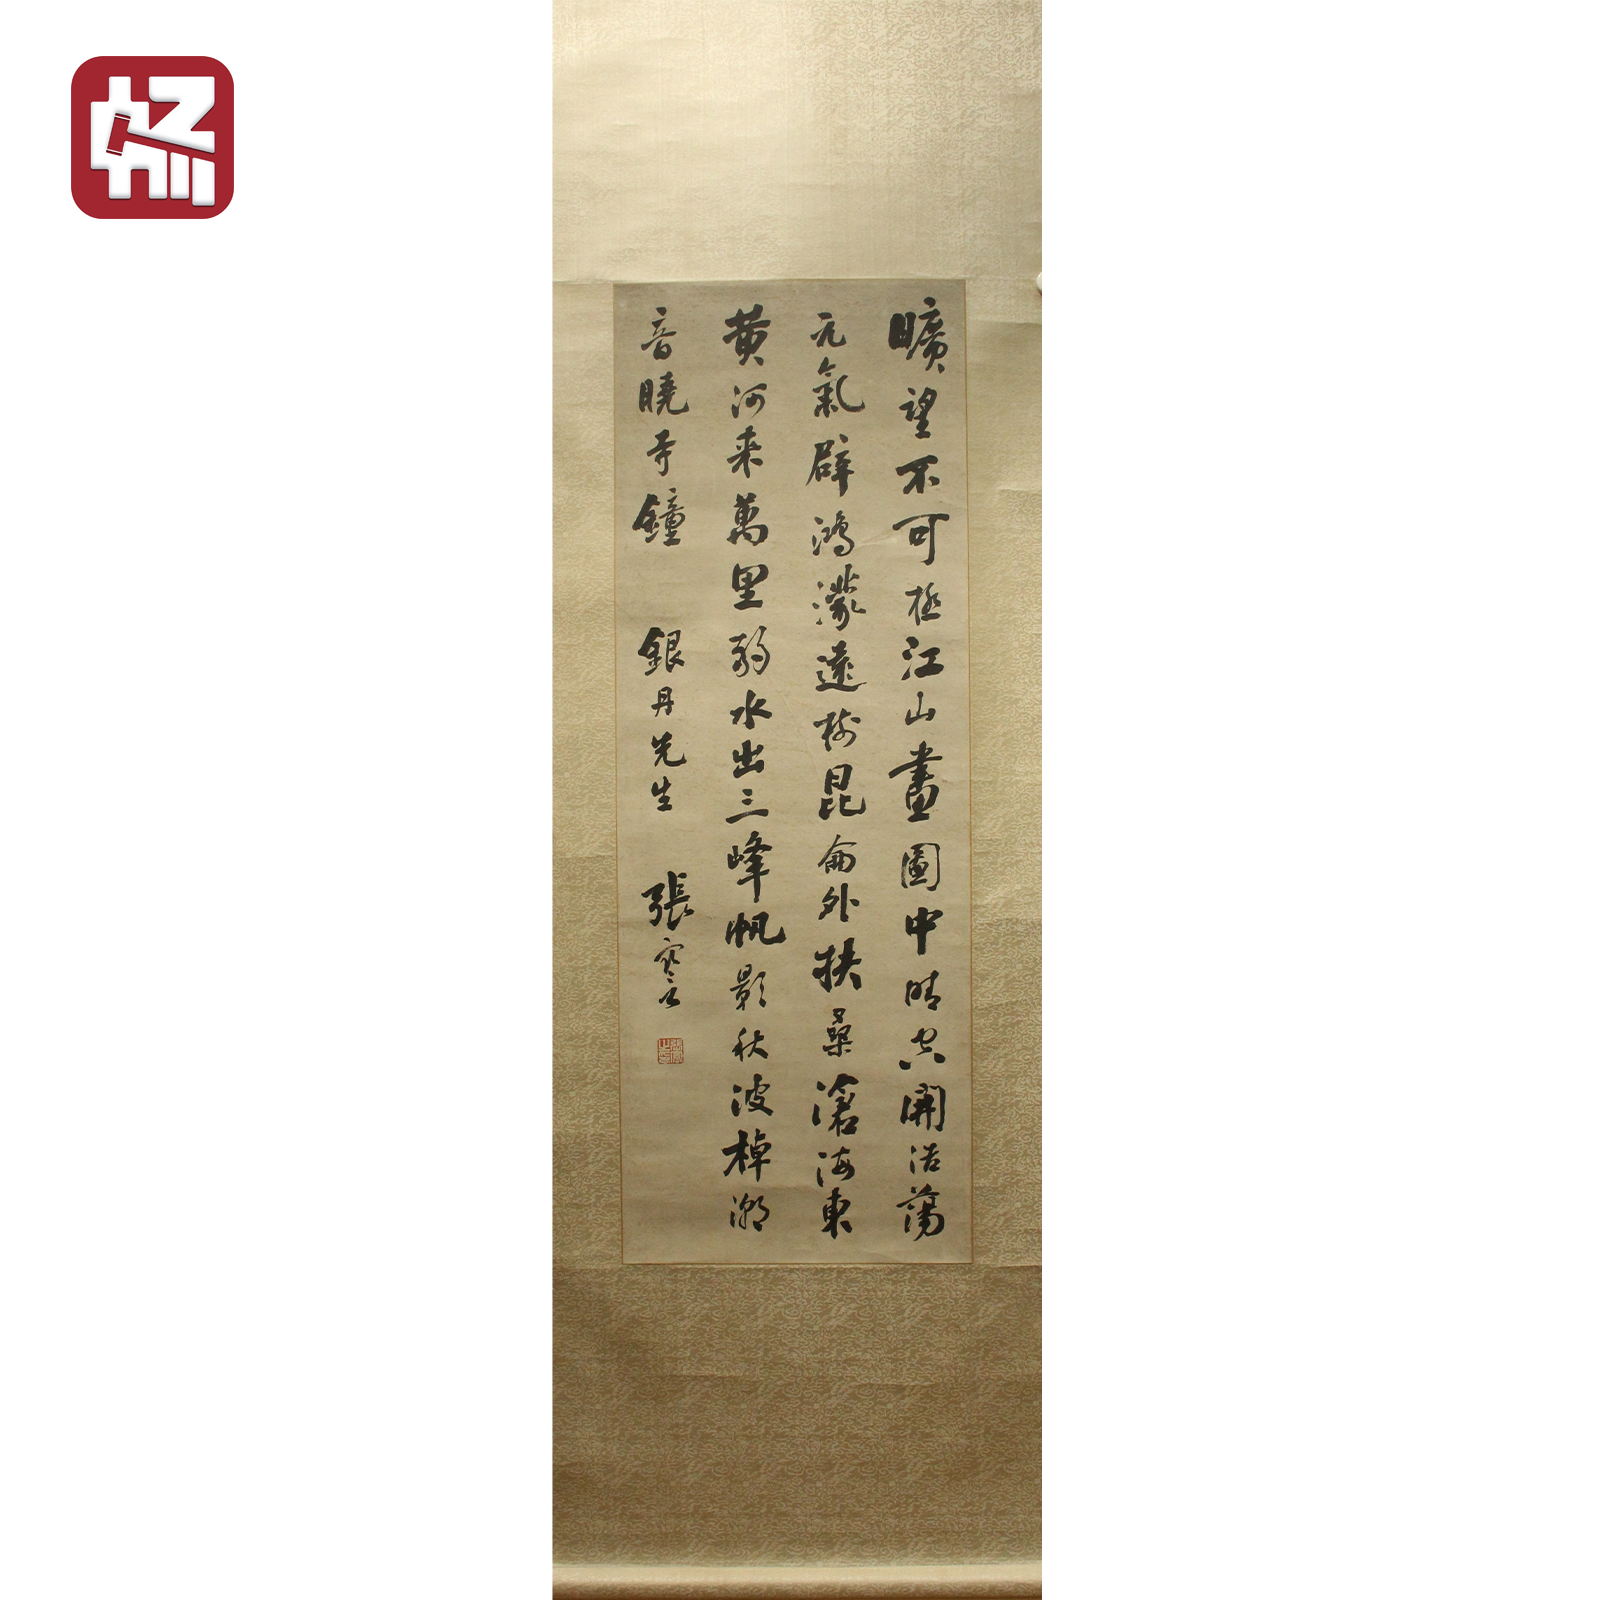 曠望不可極江山畫圖中晴空開浩蕩
元氣辟鴻濛遠樹昆侖外扶桑滄海東
黄河来萬里弱水出三峰帆影秋波棹潮
音曉寺鐘 銀丹先生 張寒